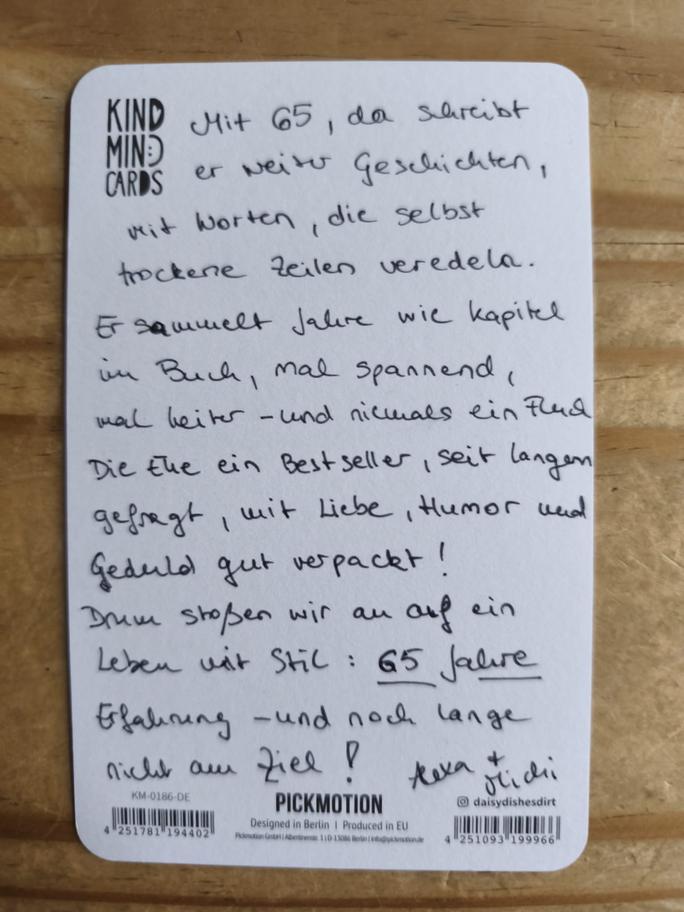 KIND
MIND
CARDS
Mit 65, da schreibt
er weiter Geschichten,
mit Worten, die selbst
trockene Zeilen veredeln.
Er sammelt Jahre wie Kapitel
im Buch, mal spannend,
mal heiter - und niemals ein Fluch
Die Ehe ein Bestseller, seit langem
gefragt, mit Liebe, Humor und
Geduld gut verpackt!
Drum stoßen wir an auf ein
Leben mit Stil: 65 Jahre
Erfahrung - und noch lange
nicht am Ziel!
Alexa +
KM-0186-DE
PICKMOTION
daisydishesdirt
Designed in Berlin | Produced in EU
4 251781 194402
4 251093 199966